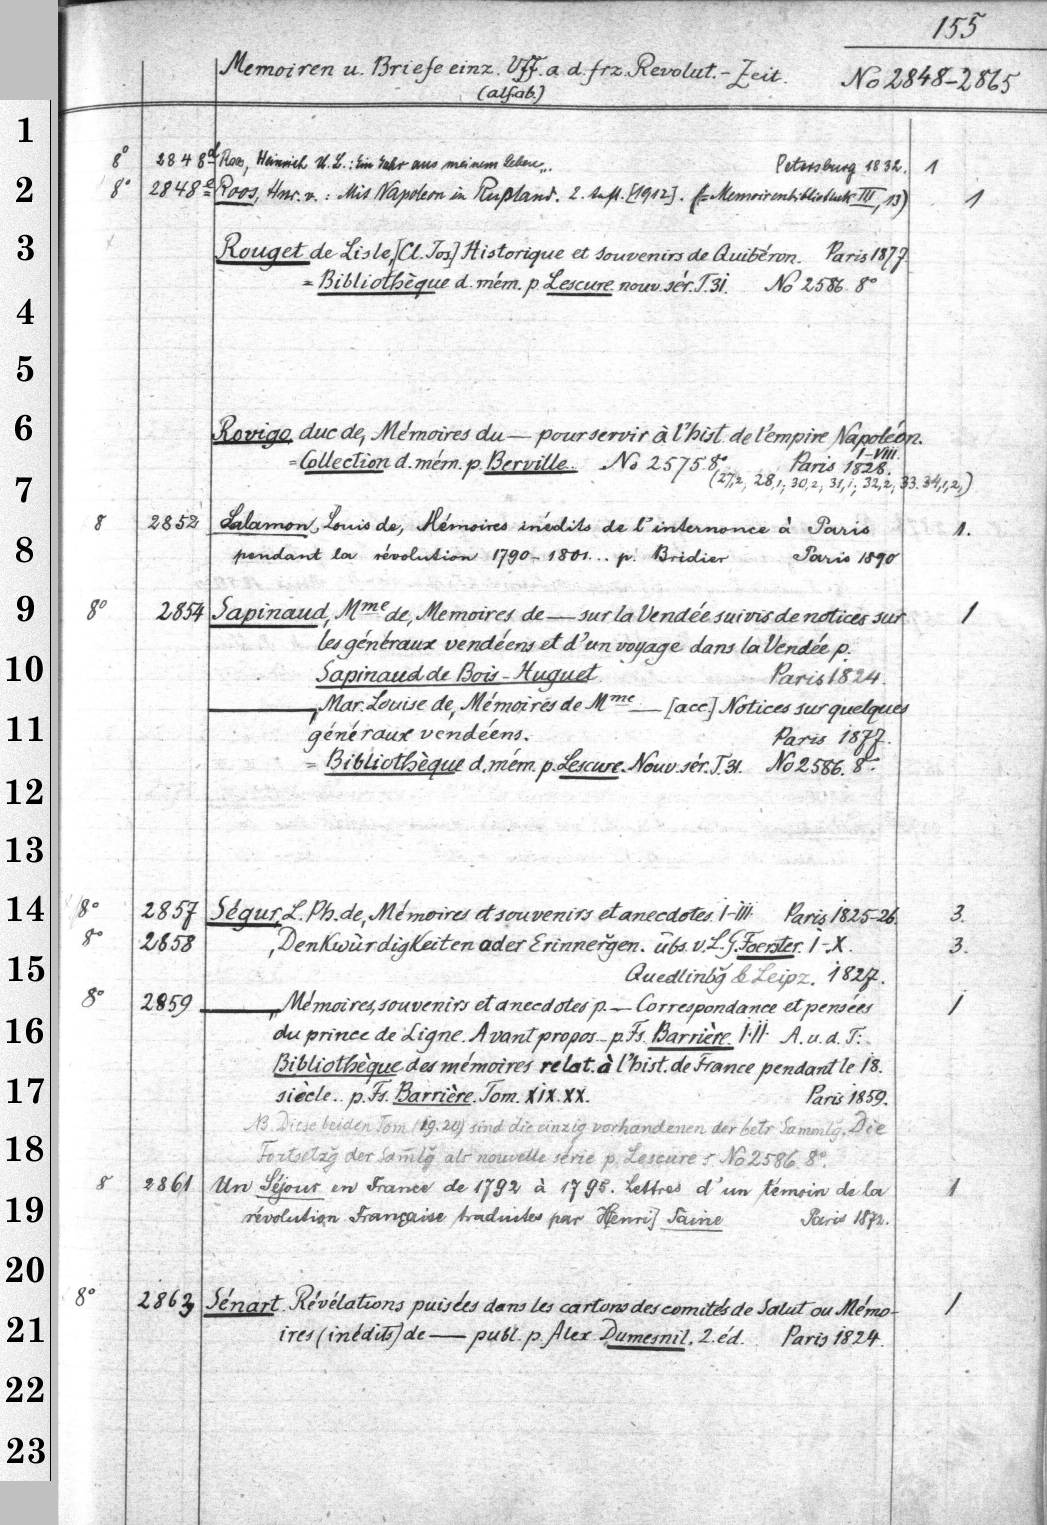 155
Memoiren u. Briefe einz. Vff. a. d. frz. Revolut.-Zeit.
(alfab.)
No 2848-2865
1
8° 2848d Roos, Heinrich U. L.: Ein Jahr aus meinem Leben... Petersburg 1832. 1
2 8° 2848e Roos, Hnr. v.: Mit Napoleon in Rußland. 2. Aufl. [1912]. (=Memoirenbibliothek III, 13) 1
3 Rouget de Lisle, [Cl. Jos] Historique et souvenirs de Quibéron. Paris 1877
4 = Bibliothèque d. mém. p. Lescure nouv. sér. T. 31. No 2586 8°
5
6 Rovigo, duc de, Mémoires du — pour servir à l'hist. de l'empire Napoléon.
I-VIII.
= Collection d. mém. p. Berville. No 2575 8° Paris 1828.
7 (27,2, 28,1; 30,2; 31,1; 32,2; 33. 34,1,2,)
8 2852 Salamon, Louis de, Mémoires inédits de l'internonce à Paris 1.
8 pendant la révolution 1790-1801... p. Bridier Paris 1890
9 8° 2854 Sapinaud, Mme de, Memoires de — sur la Vendée suivis de notices sur 1
les généraux vendéens et d'un voyage dans la Vendée p.
10 Sapinaud de Bois-Huguet Paris 1824.
——, Mar. Louise de, Mémoires de Mme — [acc.] Notices sur quelques
11 généraux vendéens. Paris 1877.
= Bibliothèque d. mém. p. Lescure. Nouv. sér. T. 31. No 2586. 8°.
12
13
14 8° 2857 Ségur, L. Ph. de, Mémoires et souvenirs et anecdotes. I-III Paris 1825-26. 3.
8° 2858 , Denkwürdigkeiten oder Erinnerg̃en. übs. v. L. G. Foerster. I-X. 3.
15 Quedlinbg̃ & Leipz. 1827.
8° 2859 ——, Mémoires, souvenirs et anecdotes p. — Correspondance et pensées 1
16 du prince de Ligne. Avant propos — p. Fs. Barrière. I.II. A. u. d. T:
Bibliothèque des mémoires relat. à l'hist. de France pendant le 18.
17 siècle.. p. Fs. Barrière. Tom. XIX. XX. Paris 1859.
NB. Diese beiden Tom (19.20) sind die einzig vorhandenen der betr Sammlg̃. Die
18 Fortsetzg̃ der Sam̃lg̃ als nouvelle série p. Lescure s. No 2586 8°.
8 2861 Un Séjour en France de 1792 à 1795. Lettres d'un témoin de la 1
19 révolution Française traduites par H[enri] Taine Paris 1872.
20
21 8° 2863 Sénart. Révélations puisées dans les cartons des comités de Salut ou Mémo- 1
ires (inédits) de — publ. p. Alex Dumesnil. 2. éd. Paris 1824.
22
23